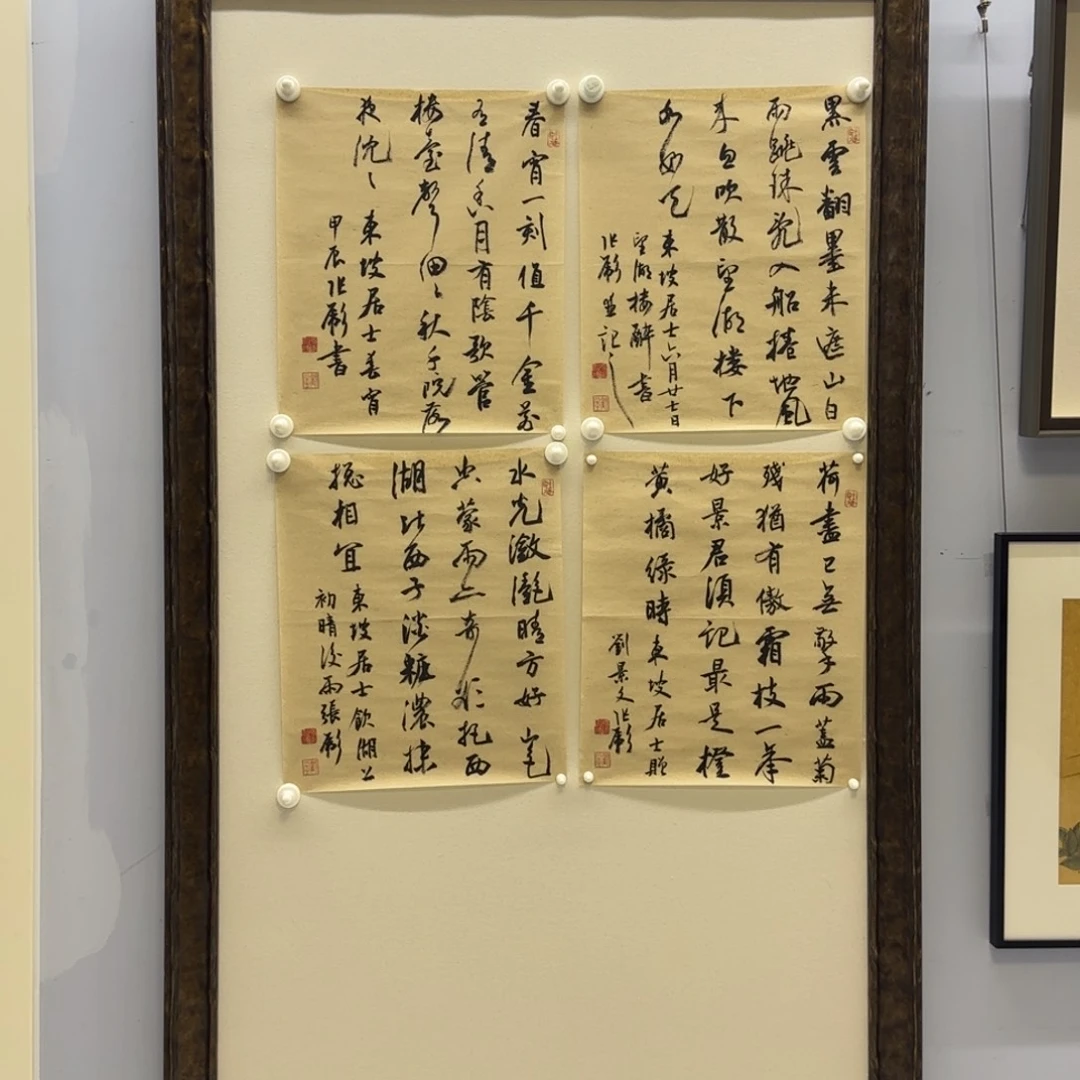 黑雲翻墨未遮山白
雨跳珠亂入船捲地風
来忽吹散望湖樓下
水如天
東坡居士六月廿七日
望湖樓醉書
張並記
春宵一刻值千金花
有清香月有陰歌管
樓臺聲細〻秋千院落
夜沈〻
東坡居士春宵
甲辰張書
荷盡已無擎雨蓋菊
殘猶有傲霜枝一年
好景君須記最是橙
黄橘緑時
東坡居士贈
劉景文張
水光瀲灧晴方好山色
空蒙雨亦奇欲把西
湖比西子淡糚濃抹
揔相宜
東坡居士飲湖上
初晴後雨張